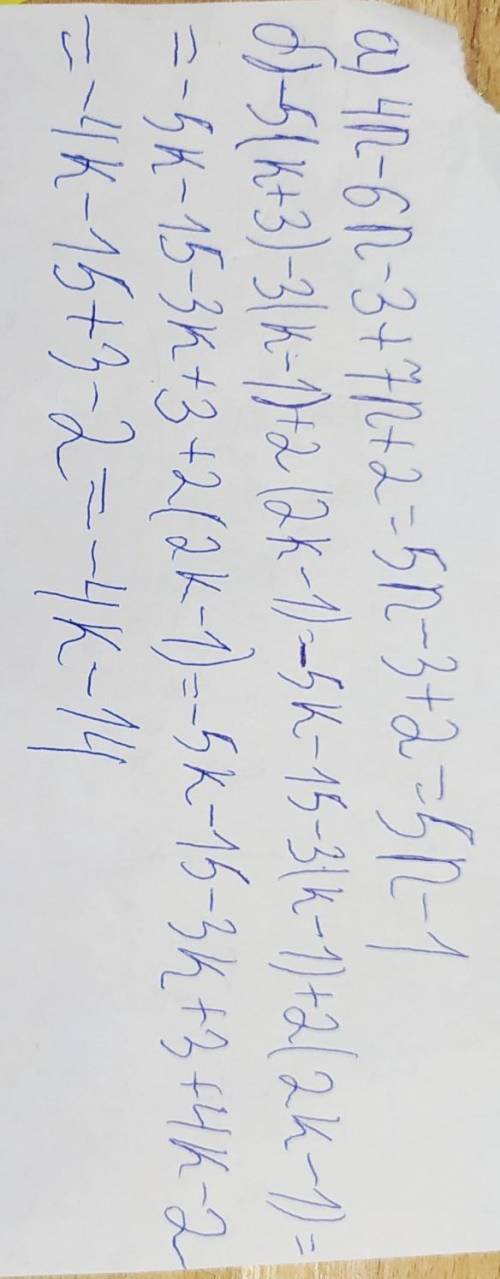 а) 4n-6n-3+7n+2=5n-3+2=5n-1
б)-5(k+3)-3(k-1)+2(2k-1)=-5k-15-3(k-1)+2(2k-1)=
=-5k-15-3k+3+2(2k-1)=-5k-15-3k+3+4k-2
=-4k-15+3-2=-4k-14